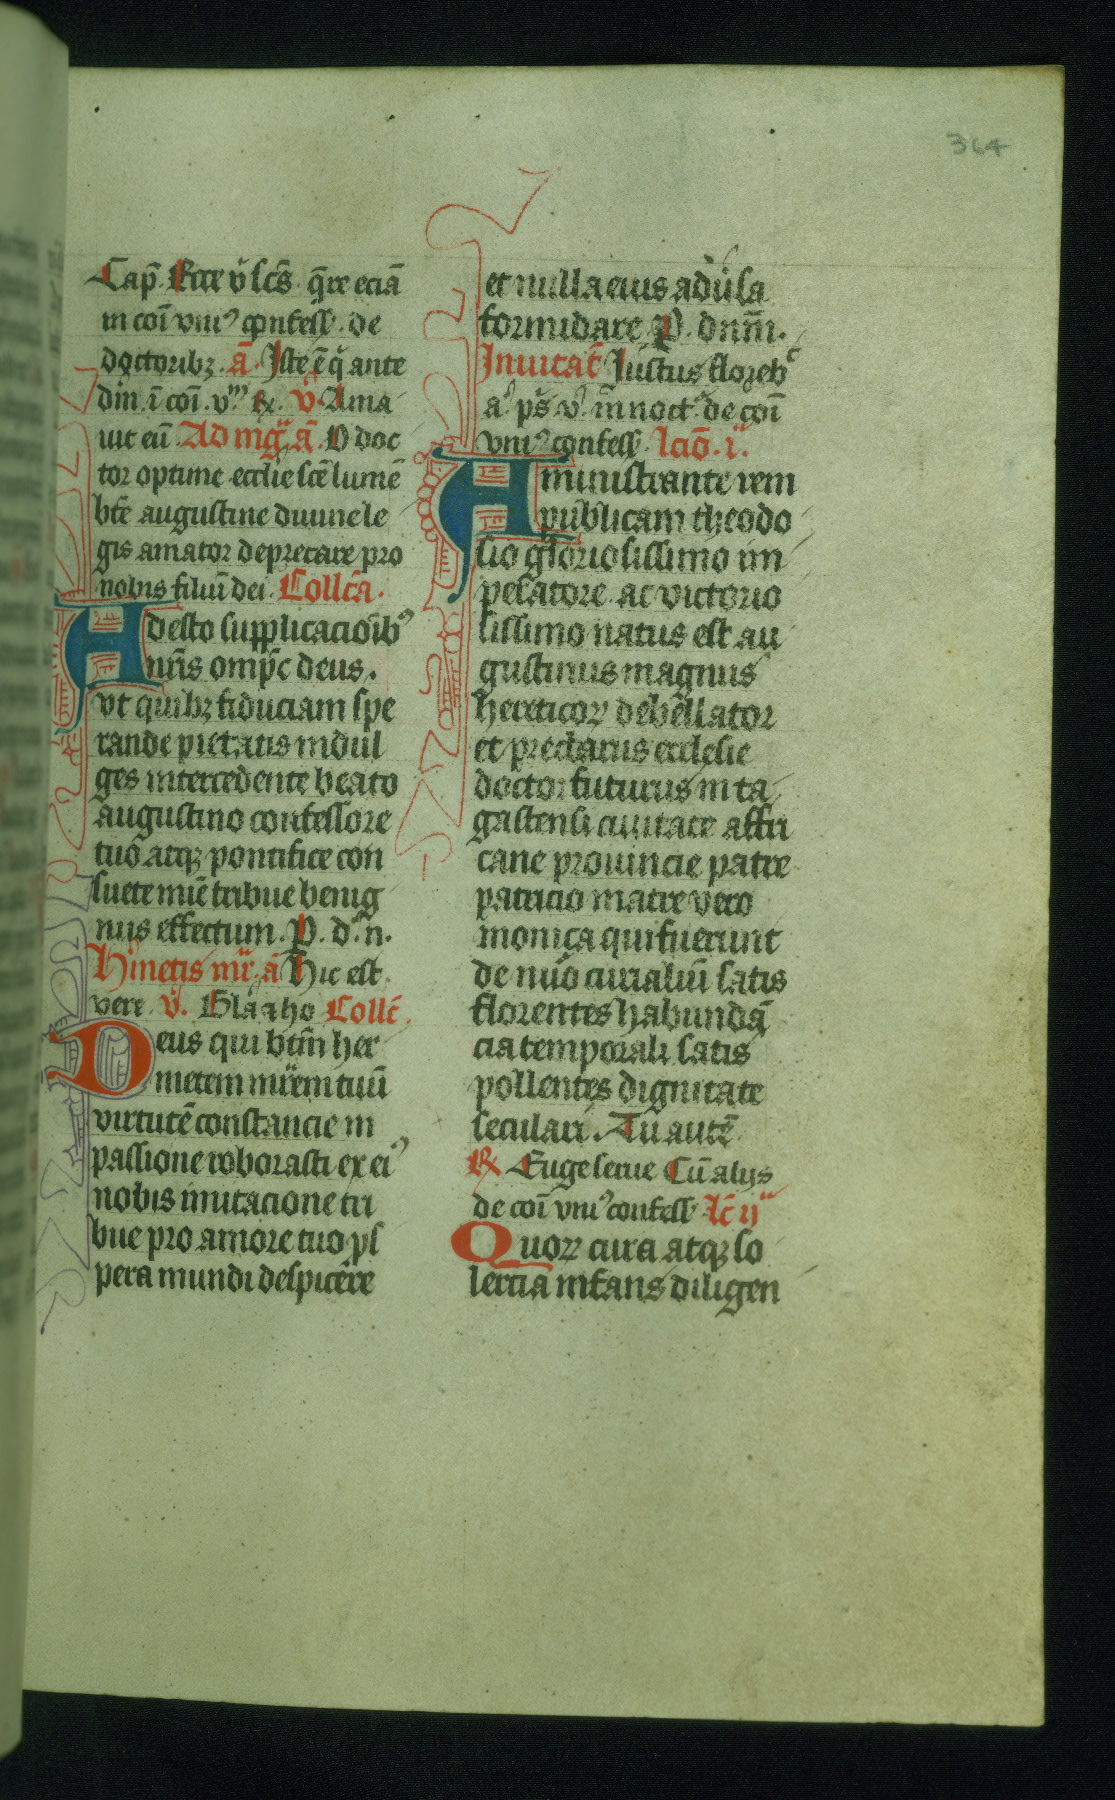 364
Cap̄ Ecce v̄ scūs q̄re eciā
in coī vniꝰ confess̄ . de
doctoribꝫ . ā . Iste ē q̄ ante
dm̄ . ī coī . vꝰ ℟ . v̄ . Ama
uit eū Ad mḡ . ā . O doc
tor optime ecclīe scē lumē
btē augustine diuine le
gis amator deprecare pro
nobis filiū dei . Collcā .
Adesto supplicacioībꝰ
nrīs omp̄c deus .
vt quibꝫ fiduciam spe
rande pietatis indul
ges intercedente beato
augustino confessore
tuo atqꝫ pontifice con
suete mīe tribue benig
nus effectum . P . d . n .
Hʼmetis mr̄ . ā Hic est
vere . v̄ . Glā ⁊ ho Collc̄ .
Deus qui btm̄ her
metem mr̄em tuū
virtute constancie in
passione roborasti ex eiꝰ
nobis imitacione tri
bue pro amore tuo ps
pera mundi despicere
et nulla eius aduʼsa
formidare P . dnm̄ .
Inuitat̄ Iustus floreb
aꝰ ps̄ . v̄ . in noct̄ de coī
vniꝰ confess̄ . lcīo . i .
Aministrante rem
publicam theodo
sio gloriosissimo im
peratore ac victorio
sissimo natus est au
gustinus magnus
hereticoꝝ debellator
et preclarus ecclesie
doctor futurus in ta
gastensi ciuitate affri
cane prouincie patre
patricio matre vero
monica qui fuerunt
de nūo curialiū satis
florentes habundā
cia temporali satis
pollentes dignitate
seculari . Tu autē
℟ Euge serue Cū alijs
de coī vniꝰ confess̄ lc̄ ij
Quoꝝ cura atqꝫ so
lercia infans diligen